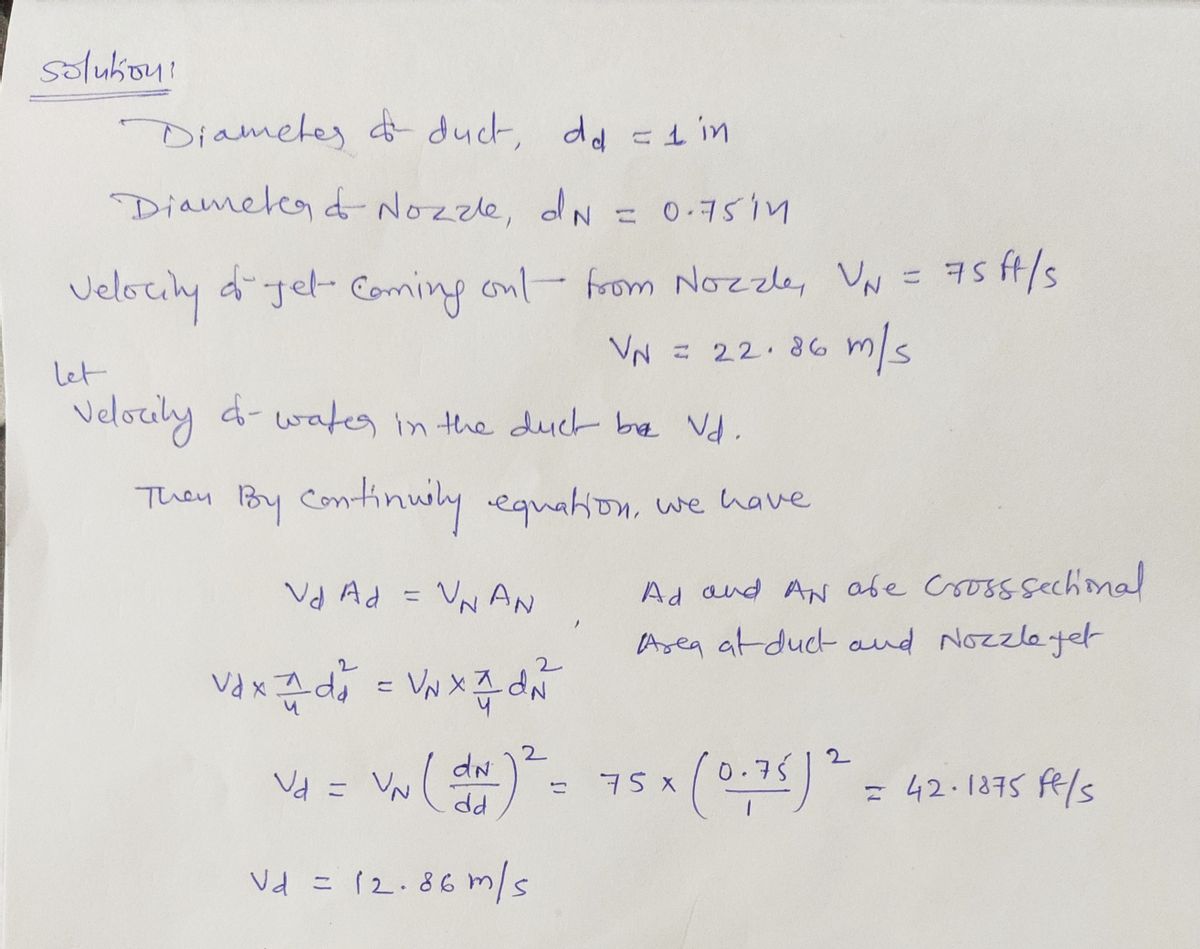 Solution:
Diameter of duct, dd = 1 in
Diameter of Nozzle, dN = 0.75 in
Velocity of jet coming out from Nozzle, VN = 75 ft/s
VN = 22.86 m/s
Let
Velocity of water in the duct be Vd.
Then By continuity equation, we have
Vd Ad = VN AN , Ad and AN are Crosssectional
Area at duct and Nozzle jet
Vd × π/4 dd² = VN × π/4 dN²
Vd = VN (dN/dd)² = 75 × (0.75/1)² = 42.1875 ft/s
Vd = 12.86 m/s